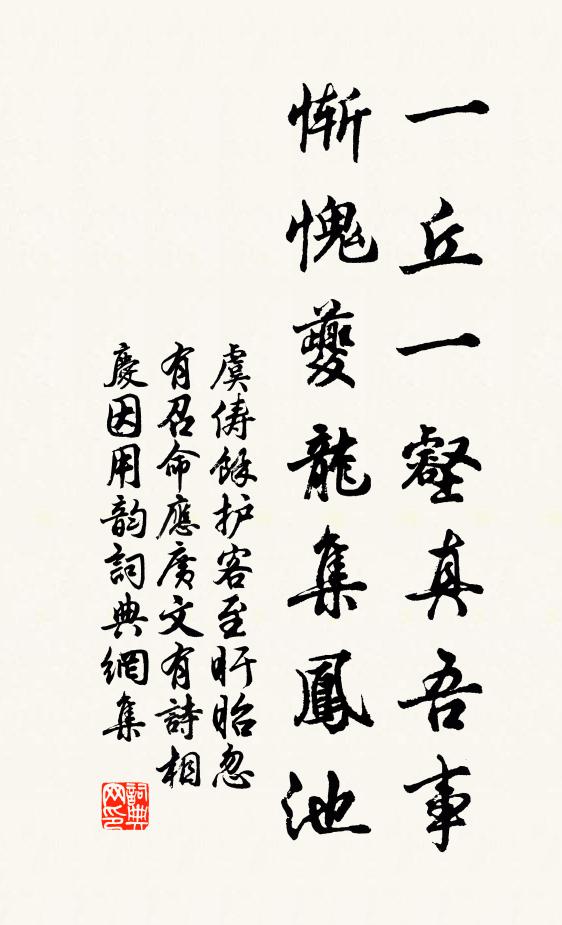 一丘一壑真吾事
慚愧夔龍集鳳池
虞儔餘护客至盱眙忽
有召命應廣文有詩相
慶因用韵詞典網集
詞典网印